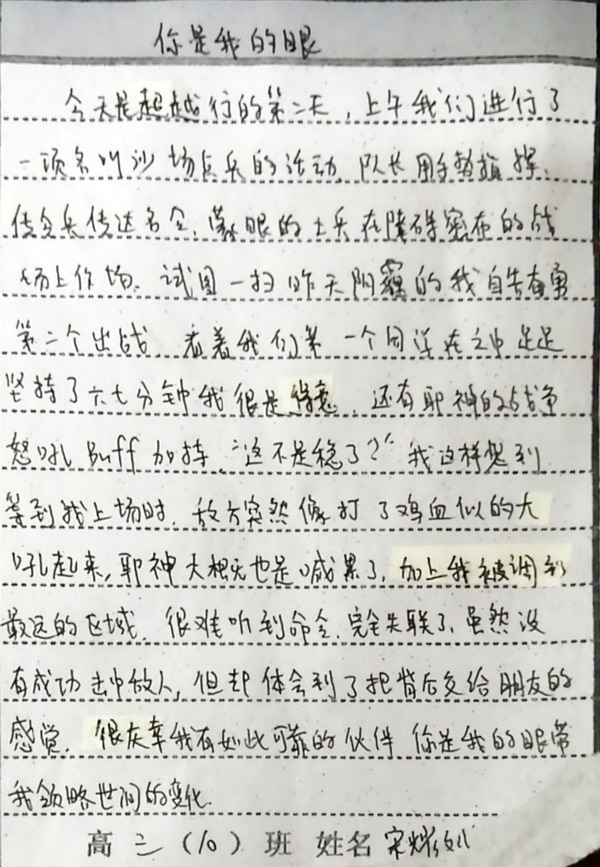 你是我的眼
今天是超越行的第二天，上午我们进行了
一项名叫沙场点兵的活动，队长用手势指挥，
传令兵传达名令，蒙眼的士兵在障碍密布的战
场上作场。试图一扫昨天阴霾的我自告奋勇
第二个出战 看着我们第一个同学在之中足足
坚持了六七分钟我很是得意，还有耶神的战争
怒吼Buff加持，"这不是稳了？"我这样想到
等到我上场时，敌方突然像打了鸡血似的大
吼起来，耶神大概也是喊累了，加上我被调到
最远的区域，很难听到命令，完全失联了，虽然没
有成功击中敌人，但却体会到了把背后交给朋友的
感觉，很庆幸我有如此可靠的伙件 你是我的眼带
我领略世间的变化.
高三（10）班 姓名 宋